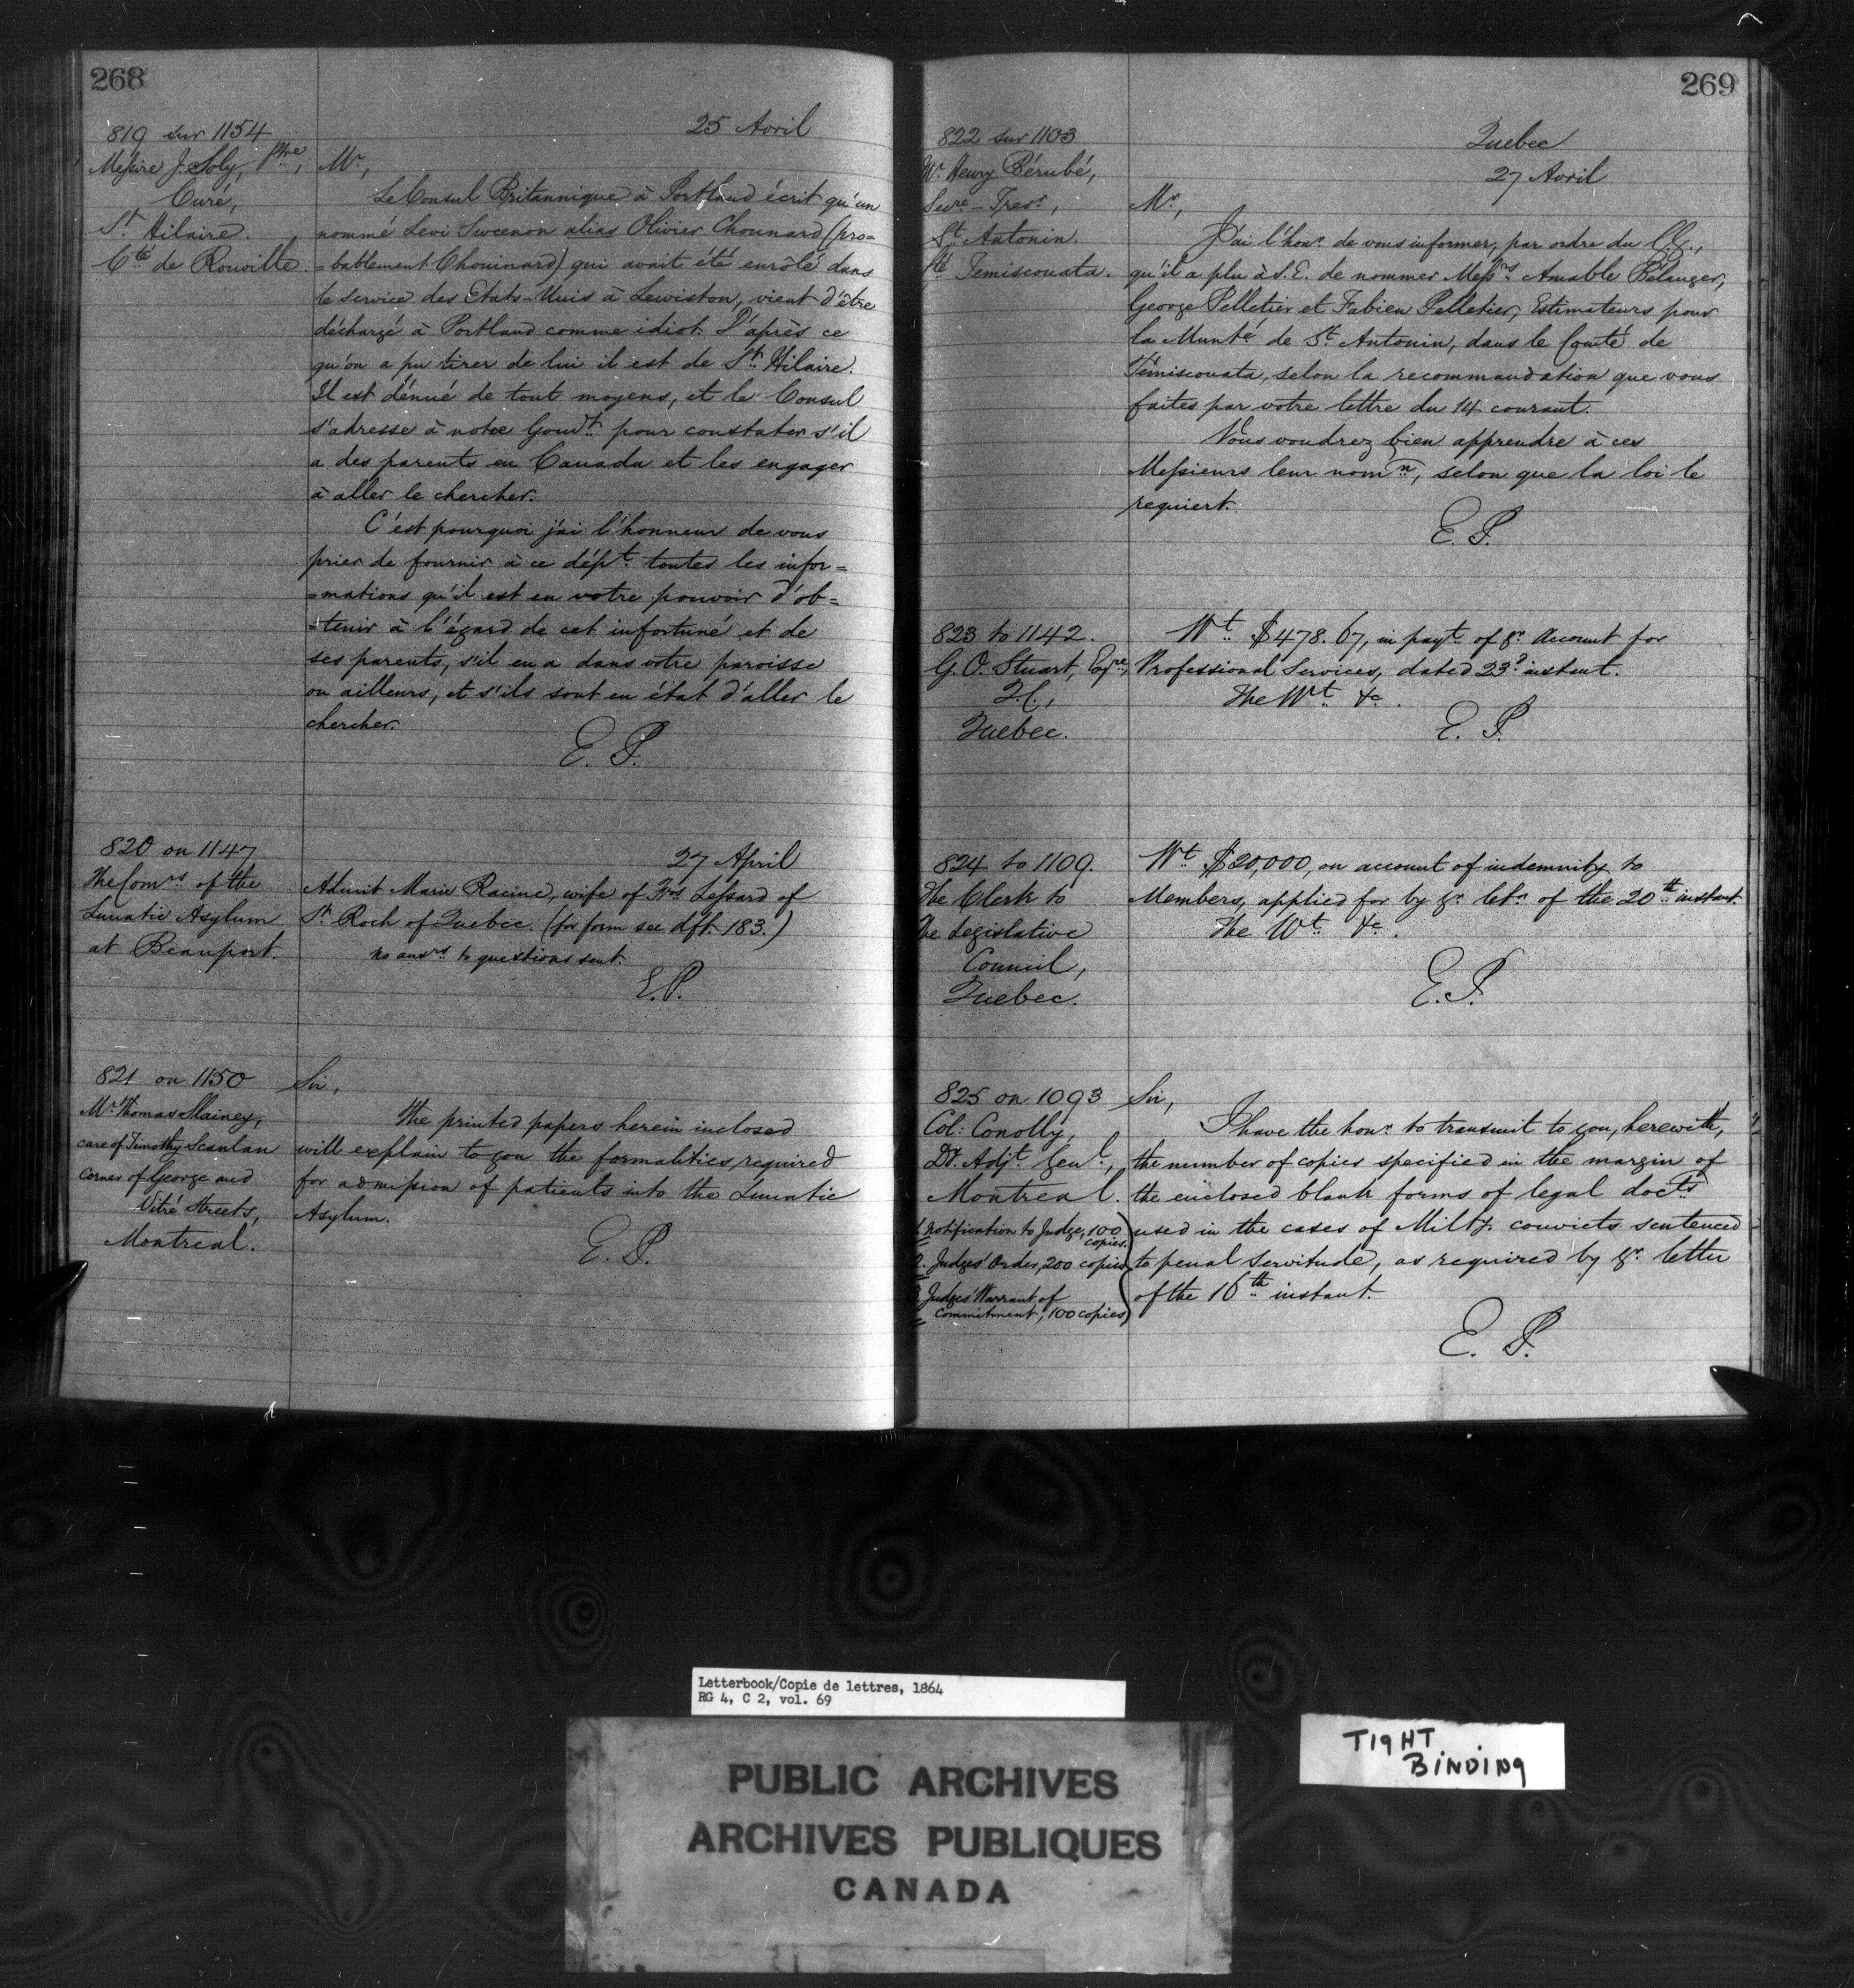 268
25 Avril
819 sur 1154
Messire J. Soly, Ptre,
Curé,
St. Hilaire.
Cté de Rouville.
Mr.,
Le Consul Britannique à Portland écrit qu'un
nommé Levi Sweenon alias Olivier Chounard (pro=
=bablement Chouinard) qui avait été enrôlé dans
le service des Etats-Unis à Lewiston, vient d'être
déchargé à Portland comme idiot. D'après ce
qu'on a pu tirer de lui il est de St. Hilaire.
Il est dénué de tout moyens, et le Consul
s'adresse à notre Gouvt. pour constater s'il
a des parents en Canada et les engager
à aller le chercher.
C'est pourquoi j'ai l'honneur de vous
prier de fournir à ce dépt. toutes les infor=
=mations qu'il est en votre pouvoir d'ob=
=tenir à l'égard de cet infortuné et de
ses parents, s'il en a dans votre paroisse
ou ailleurs, et s'ils sont en état d'aller le
chercher.
E. P.
820 on 1147
The Comrs. of the
Lunatic Asylum
at Beauport.
27 April
Admit Marie Racine, wife of Frs. Lessard of
St. Roch of Quebec. (for form see dft. 183.)
no answrs. to questions sent.
E.P.
821 on 1150
Mr. Thomas Slainey,
care of Timothy Scanlan
corner of George and
Vitré Streets,
Montreal.
Sir,
The printed papers herein inclosed
will explain to you the formalities required
for admission of patients into the Lunatic
Asylum.
E. P.
269
Quebec
27 Avril
822 sur 1103
Mr. Henry Bérubé,
Secre.-Tresr.,
St. Antonin.
Cté. Temiscouata.
Mr.,
J'ai l'honr. de vous informer, par ordre du G.G.,
qu'il a plu à S.E. de nommer Messrs. Amable Bélanger,
George Pelletier et Fabien Pelletier, Estimateurs pour
la Munté. de St. Antonin, dans le Comté de
Témiscouata, selon la recommandation que vous
faites par votre lettre du 14 courant.
Vous voudrez bien apprendre à ces
Messieurs leur nomn., selon que la loi le
requiert.
E. P.
823 to 1142.
G. O. Stuart, Esqre.,
Q.C.,
Quebec.
Wt. $478.67, in payt. of yr. Account for
Professional Services, dated 23d. instant.
The Wt. &c.
E. P.
824 to 1109.
The Clerk to
The Legislative
Council,
Quebec.
Wt. $20,000, on account of indemnity to
Members, applied for by yr. letr. of the 20th. instant.
The Wt. &c.
E. P.
825 on 1093
Col: Conolly,
Dt. Adjt. Genl.,
Montreal.
1. Notification to Judge, 100
copies.
2. Judges' Order, 200 copies
3. Judges' Warrant of
Commitment; 100 copies)
Sir,
I have the honr. to transmit to you, herewith,
the number of copies specified in the margin of
the enclosed blank forms of legal docts.
used in the cases of Milty. convicts sentenced
to penal servitude, as required by yr. letter
of the 16th. instant.
E. P.
Letterbook/Copie de lettres, 1864
RG 4, C 2, vol. 69
TIGHT
BINDING
PUBLIC ARCHIVES
ARCHIVES PUBLIQUES
CANADA